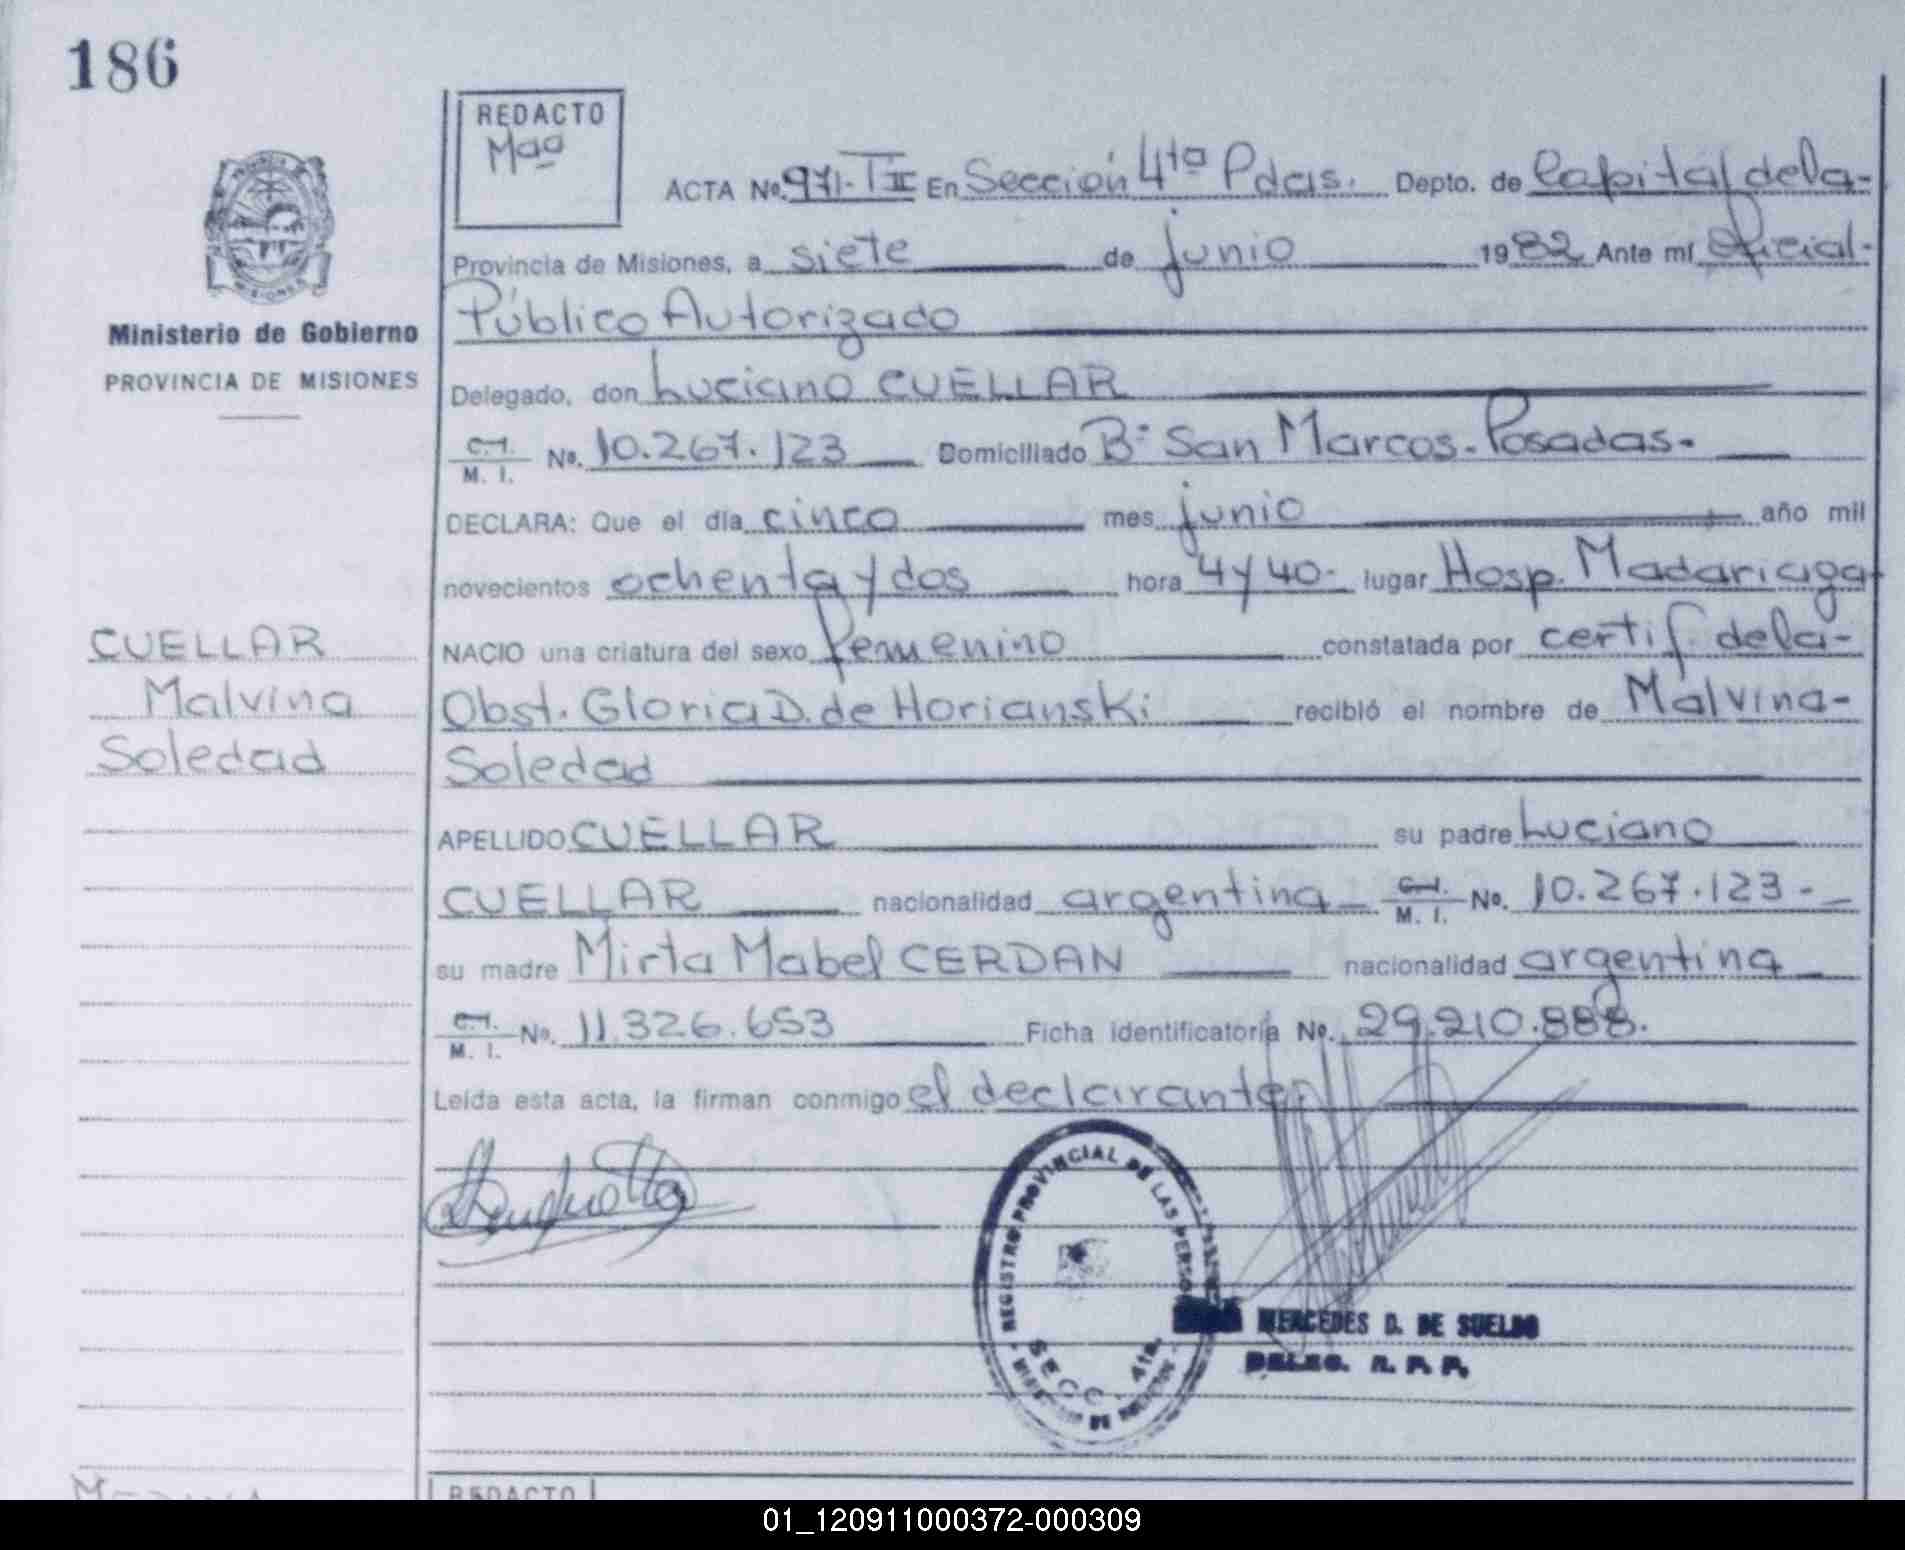 186
REDACTO
Mao
ACTA No. 971-TII En Sección 4ta Pdas. Depto. de Capital dela-
Provincia de Misiones, a siete de junio 1982 Ante mí Oficial-
Público Autorizado
Ministerio de Gobierno
PROVINCIA DE MISIONES
Delegado, don Luciano CUELLAR
C.I. M. I. No. 10.267.123 Domiciliado Bº San Marcos-Posadas-
DECLARA: Que el día cinco mes junio año mil
novecientos ochenta y dos hora 4 y 40- lugar Hosp. Madariaga
CUELLAR
Malvina
Soledad
NACIO una criatura del sexo femenino constatada por certif. dela-
Obst. Gloria D. de Horianski recibió el nombre de Malvina-
Soledad
APELLIDO CUELLAR su padre Luciano
CUELLAR nacionalidad argentina C.I. M. I. No. 10.267.123-
su madre Mirta Mabel CERDAN nacionalidad argentina
C.I. M. I. No. 11.326.653 Ficha identificatoria No. 29.210.888.
Leída esta acta, la firman conmigo el declarante
REGISTRO PROVINCIAL DE LAS PERSO
SECC. 4ta.
MERCEDES D. DE SUELDO
DELEG. R. P. P.
REDACTO
01_120911000372-000309